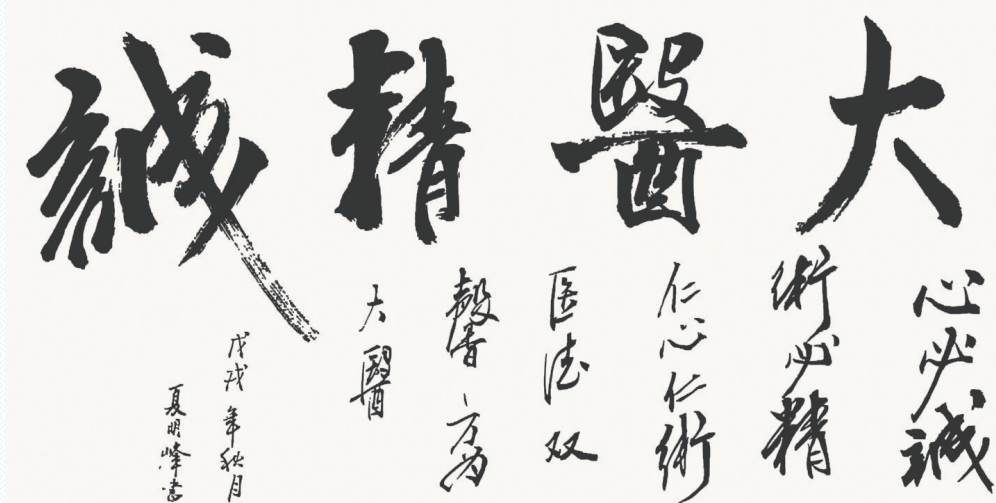 大醫精誠
心必誠
術必精
仁心仁術
医德双
馨、方为
大醫
戊戌年秋月
夏明峰書